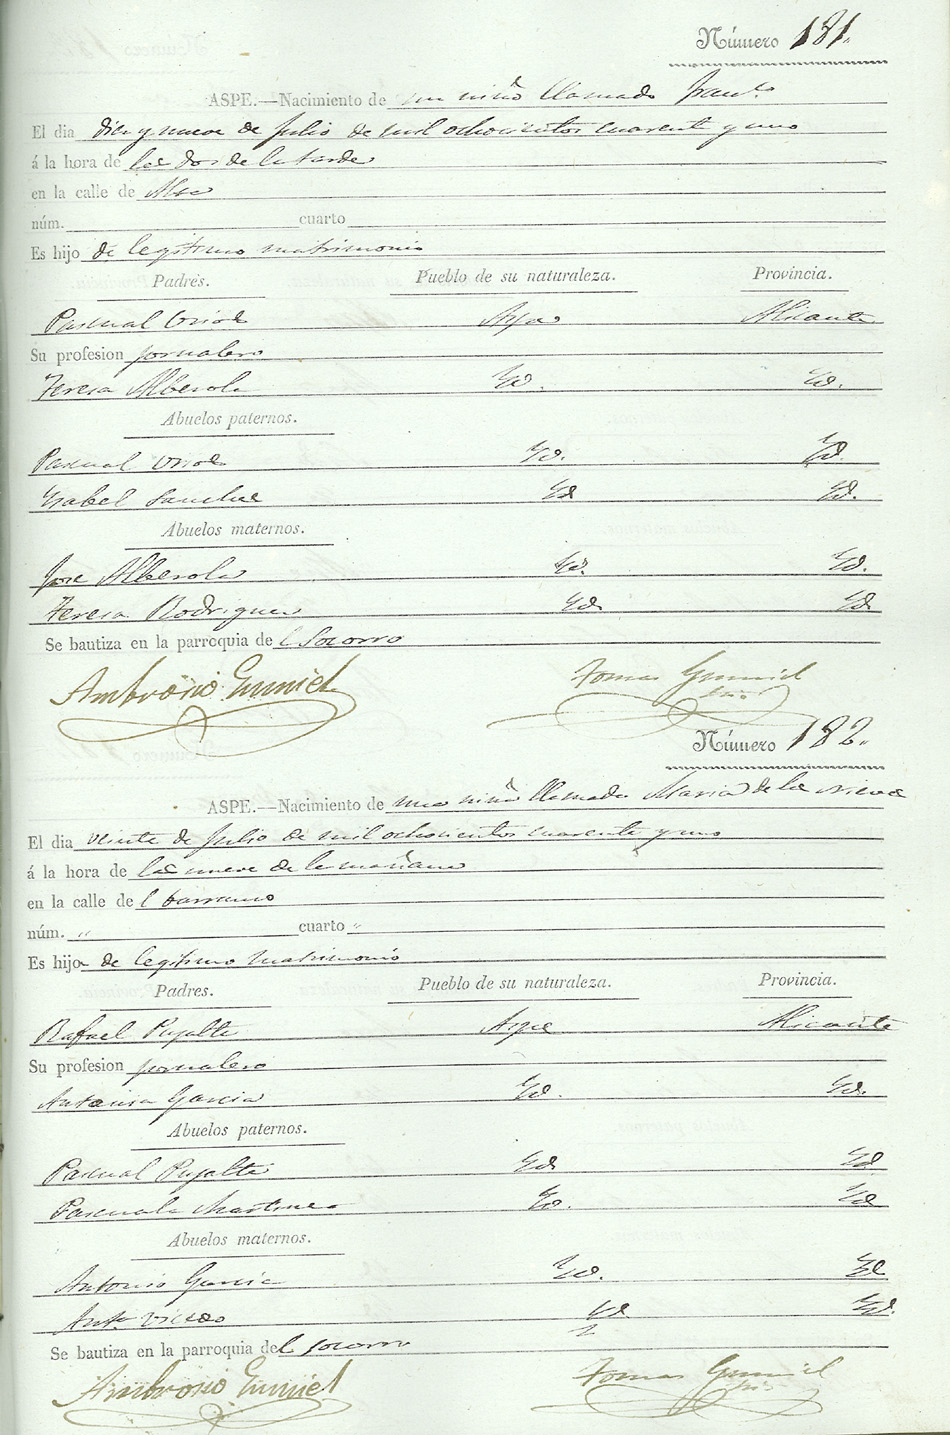 Número 181.
ASPE.—Nacimiento de un niño llamado Franco
El dia diez y nueve de Julio de mil ochocientos cuarenta y uno
á la hora de las dos de la tarde
en la calle de
núm. cuarto
Es hijo de legitimo matrimonio
Padres. Pueblo de su naturaleza. Provincia.
Pascual Aspe Alicante
Su profesion jornalero
Teresa Alberola Yd. Yd.
Abuelos paternos.
Pascual Yd. Yd.
Ysabel Sanchez Yd Yd.
Abuelos maternos.
Jose Alberola Yd. Yd.
Teresa Rodriguez Yd Yd
Se bautiza en la parroquia del Socorro
Ambrosio Gumiel Tomas Gumiel
Número 182.
ASPE.—Nacimiento de una niña llamada Maria de las Nieves
El dia veinte de Julio de mil ochocientos cuarenta y uno
á la hora de las nueve de la mañana
en la calle del barranco
núm. " cuarto "
Es hija de legitimo matrimonio
Padres. Pueblo de su naturaleza. Provincia.
Rafael Pujalte Aspe Alicante
Su profesion jornalero
Antonia Garcia Yd. Yd.
Abuelos paternos.
Pascual Pujalte Yd Yd
Pascuala Martinez Yd. Yd
Abuelos maternos.
Antonio Garcia Yd. Yd
Anta Yd Yd.
Se bautiza en la parroquia del Socorro
Ambrosio Gumiel Tomas Gumiel